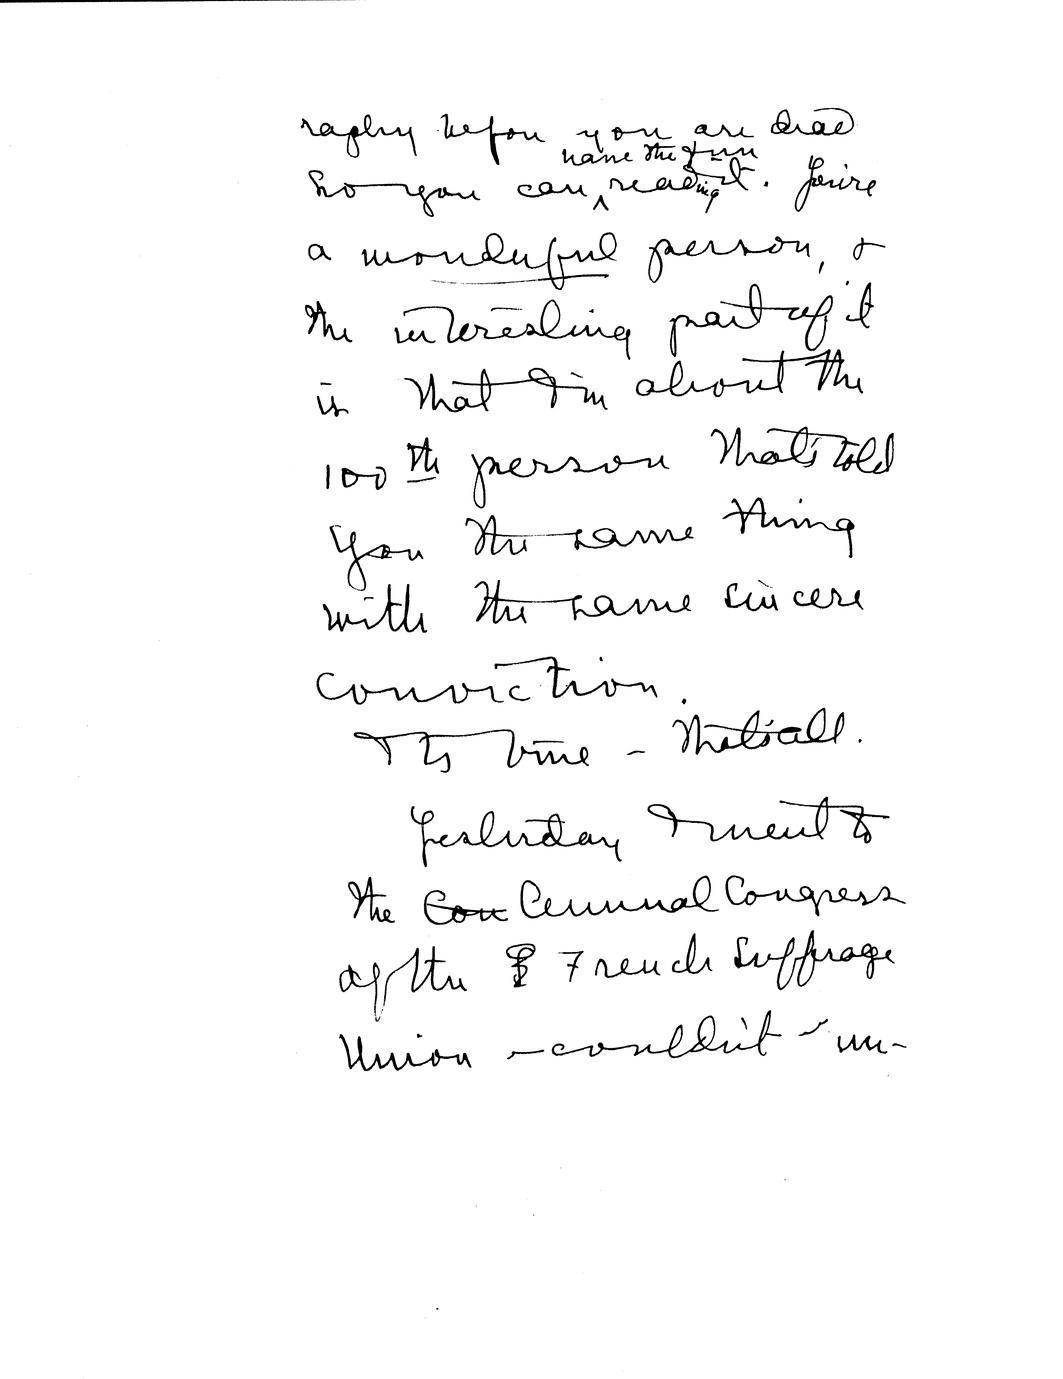 raphy before you are dead
have the fun
so you can ^ reading it. You're
a wonderful person, &
the interesting part of it
is that I'm about the
100th person that's told
you the same thing
with the same sincere
conviction.
It's true - that's all.
Yesterday I went to
the Con Cennual Congress
of the F French Suffrage
Union - couldn't un-